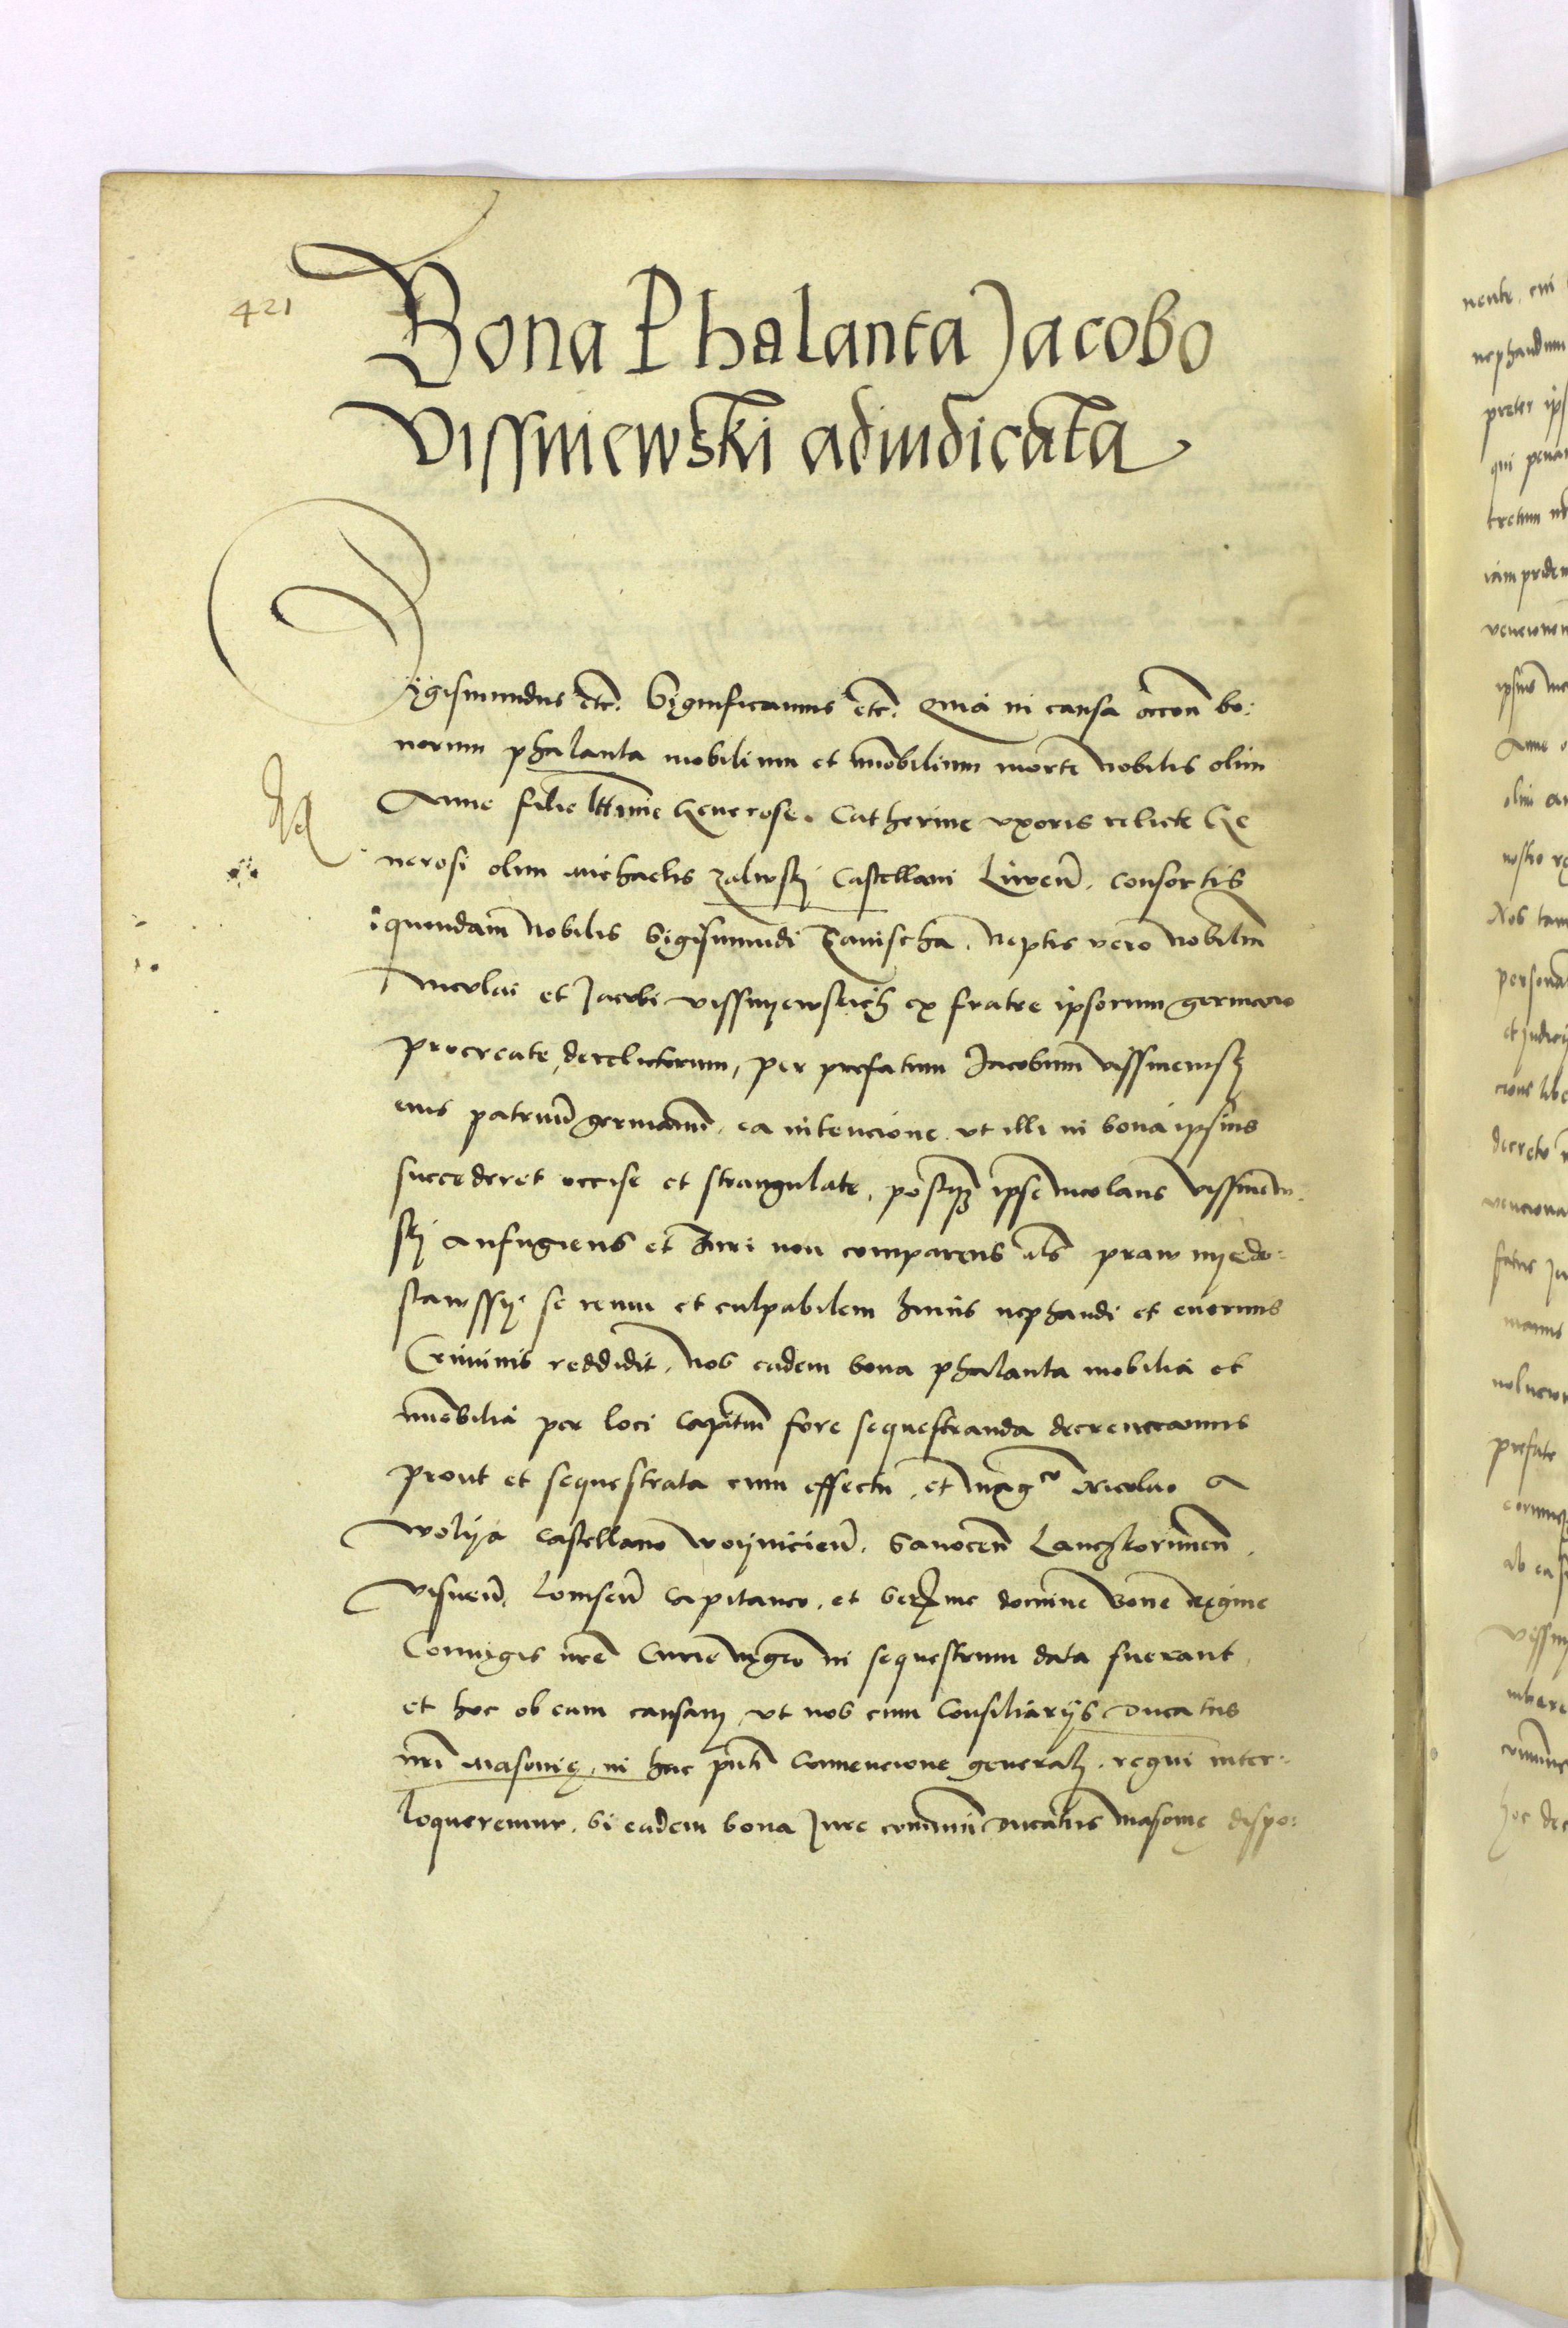 421
Bona Phalanta Jacobo
Vissniewski adiudicata
Sigismundus etc. Significamus etc. Quia in causa occōn bo:
norum phalanta mobilium et īmobilium morte nobilis olim
Anne filie lttīme Generose Catherine uxoris relicte Ge
nerosi olim Michaelis Zalıwskj Castellani Liwen̄. consortis
quondam Nobilis Sigismundi Tanischa. Neptis vero Nobiliū
Nicolai et Jacobi Vissnyewskich ex fratre ipsorum germano
procreate, derelictorum, per prefatum Jacobum Vissniewskj
eius patruū germanū. ea intencione. ut illi in bona ipsius
succederet occise et strangulate, postqȝ ipse Nicolaus Vissniew
skj aufugiens et Juri non comparens als prawu nyedo:
stawssy se reum et culpabilem huius nephandi et enormis
Criminis reddidit. Nos eadem bona phalanta mobilia et
īmobilia per loci Capitm̄ fore sequestranda decreveramus
prout et sequestrata cum effectu, et Magco Nicolao a
Wolya Castellano Woyniciēn. Sanocen̄ Lanczkorunen̄.
Visnen̄. Lomsen̄ Capitaneo. et Serme domine Bone Regine
Coniugis nrē Curie Mgro in sequestrum data fuerant,
et hoc ob eam causam, ut nos cum Consiliariys Ducatus
nrī Masovię, in hac pn̄ti Convencione generalj. regni inter:
loqueremur. Si eadem bona Jure com̄uni Ducatus Masovie dispo:
nente, cui
nephandum
preter
qui
iam
Anne
olim
Nos
decreto
prefate
ab ea